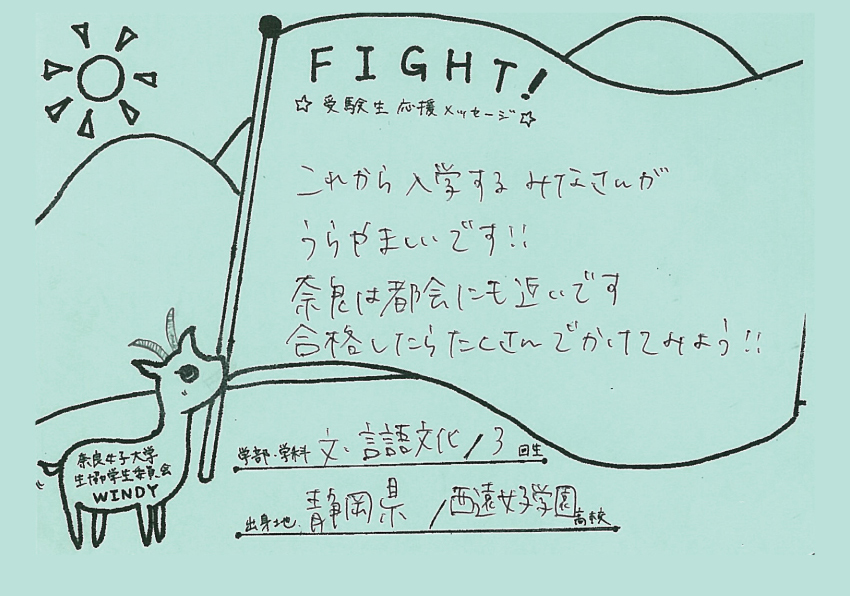 FIGHT!
☆受験生応援メッセージ☆
これから入学するみなさんが
うらやましいです!!
奈良は都会にも近いです
合格したらたくさんでかけてみよう!!
学部・学科 文・言語文化/3回生
出身地・静岡県/西遠女子学園高校
奈良女子大学
生協学生委員会
WINDY